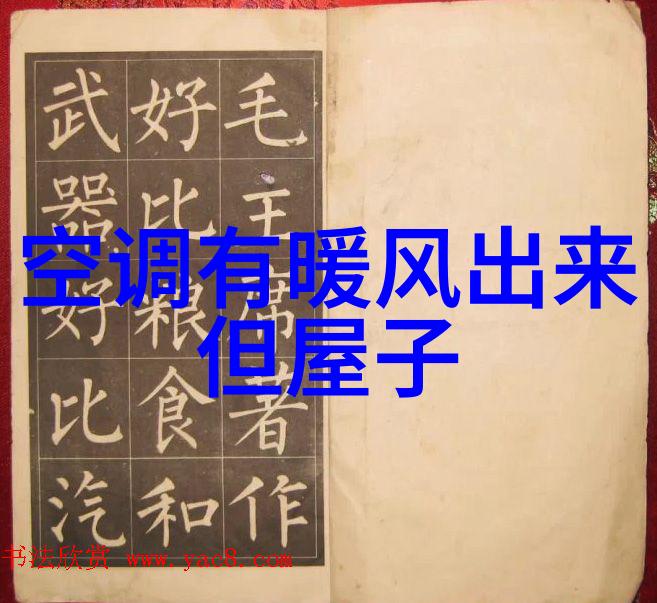 毛主席著作
好比粮食和
武器好比汽
空调有暖风出来
但屋子
书法欣赏 www.yac8.com